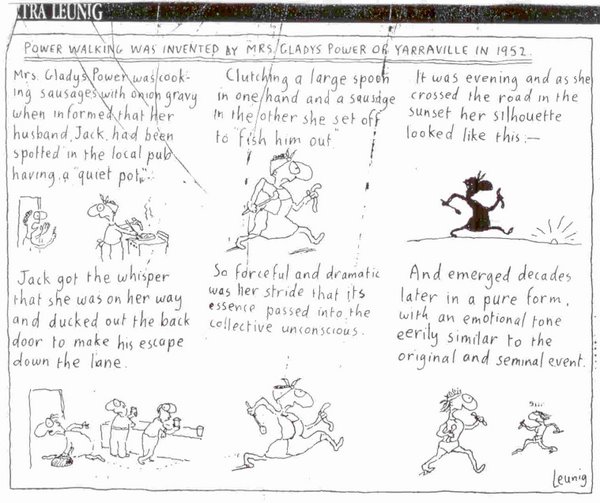 XTRA LEUNIG
POWER WALKING WAS INVENTED BY MRS. GLADYS POWER OF YARRAVILLE IN 1952.
Mrs. Gladys Power was cook-
ing sausages with onion gravy
when informed that her
husband, Jack, had been
spotted in the local pub
having a "quiet pot".
Clutching a large spoon
in one hand and a sausage
in the other she set off
to "fish him out"
It was evening and as she
crossed the road in the
sunset her silhouette
looked like this:—
Jack got the whisper
that she was on her way
and ducked out the back
door to make his escape
down the lane.
So forceful and dramatic
was her stride that its
essence passed into the
collective unconscious.
And emerged decades
later in a pure form,
with an emotional tone
eerily similar to the
original and seminal event.
Leunig